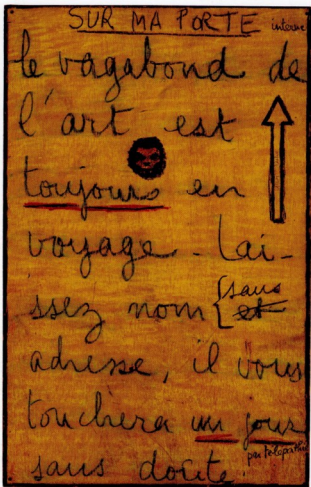 SUR MA PORTE interne
le vagabond de
l'art est
toujours en
voyage. Lai-
ssez nom { sans
et
adresse, il vous
touchera un jour
par télépathie
sans doute.